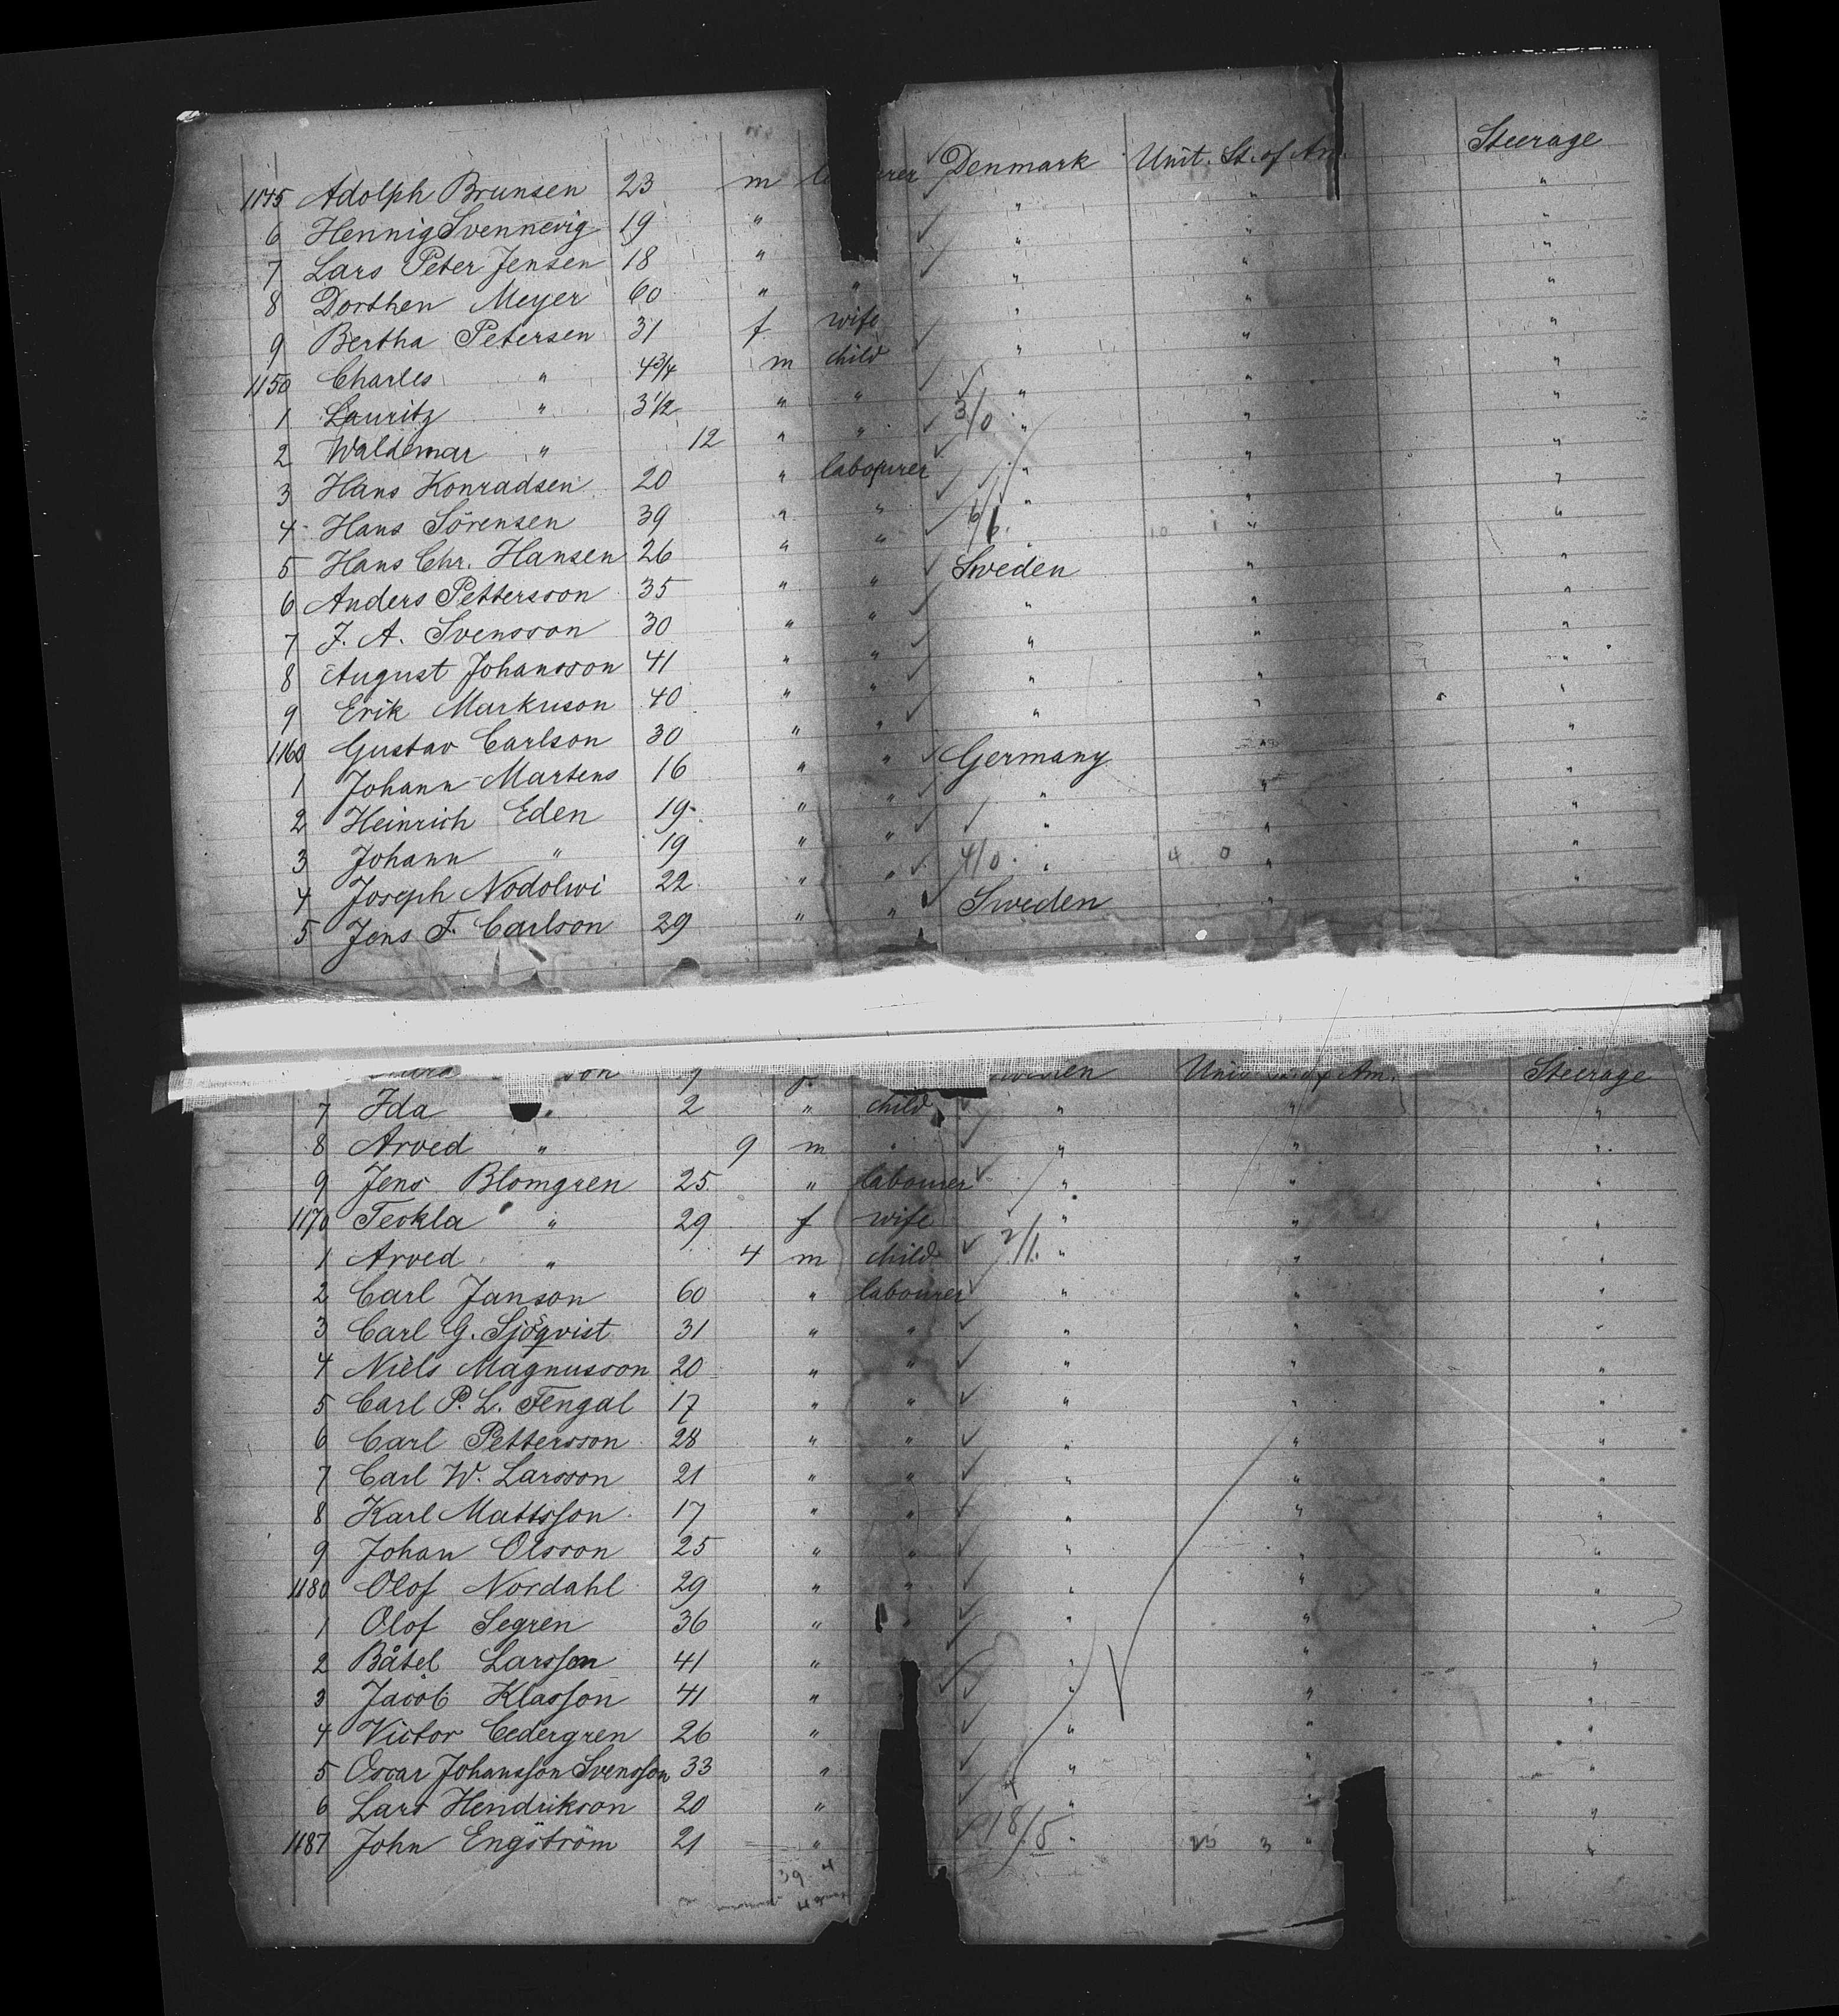 1145 Adolph Brunsen 23 m Denmark Unit. St. of Am. Steerage
6 Hennig Svennevig 19 " " " "
7 Lars Peter Jensen 18 " " " "
8 Dorthen Meyer 60 " " " " "
9 Bertha Petersen 31 f wife " " "
1150 Charles " 4 3/4 m child " " "
1 Lauritz " 3 1/2 " " " " "
2 Waldemar " 12 " " 3/0 " " "
3 Hans Konradsen 20 " labourer " " "
4 Hans Sörensen 39 " " " " "
5 Hans Chr. Hansen 26 " " 6/6. " "
6 Anders Pettersson 35 " " Sweden " "
7 J. A. Svensson 30 " " " " "
8 August Johansson 41 " " " " "
9 Erik Markuson 40 " " " " "
1160 Gustav Carlson 30 " " " " "
1 Johann Martens 16 " " Germany " "
2 Heinrich Eden 19 " " " " "
3 Johann " 19 " " " " "
4 Joseph Nodolwi 22 " " 4/0 " 4 0 " "
5 Jens F. Carlson 29 " " Sweden " "
Am. Steerage
7 Ida " 2 " child " " "
8 Arved " 9 m " " " "
9 Jens Blomgren 25 " labourer " " "
1170 Teokla " 29 f wife " " "
1 Arved " 4 m child 2/1. " " "
2 Carl Janson 60 " labourer " " "
3 Carl G. Sjöqvist 31 " " " " "
4 Niels Magnusson 20 " " " " "
5 Carl P. L. Fengal 17 " " " " "
6 Carl Pettersson 28 " " " " "
7 Carl W. Larsson 21 " " " " "
8 Karl Mattsson 17 " " " " "
9 Johan Olsson 25 " " " " "
1180 Olof Nordahl 29 " " " " "
1 Olof Segren 36 " " " " "
2 Båtel Larsson 41 " " " "
3 Jacob Klasson 41 " " " "
4 Victor Cedergren 26 " " " "
5 Oscar Johansson Svensson 33 " " " "
6 Lars Hendrikson 20 " " " "
1187 John Engström 21 " 18/5 " 3 " "
39 4